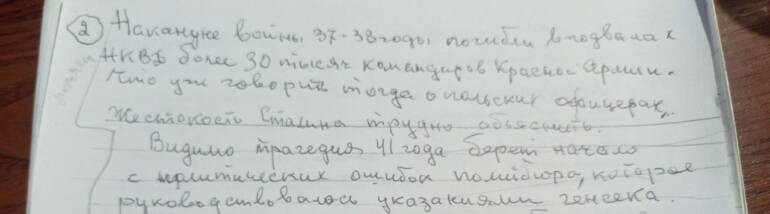 ② Накануне войны 37-38 годы погибли в подвалах
НКВД более 30 тысяч командиров Красной Армии.
Что уж говорить тогда о польских офицерах..
Жестокость Сталина трудно объяснить.
Видимо трагедия 41 года берет начало
с критических ошибок политбюро, которое
руководствовалось указаниями генсека.